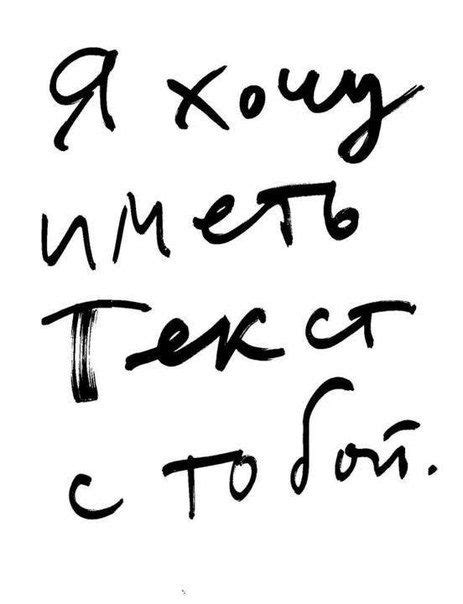 Я хочу
иметь
Текст
с тобой.